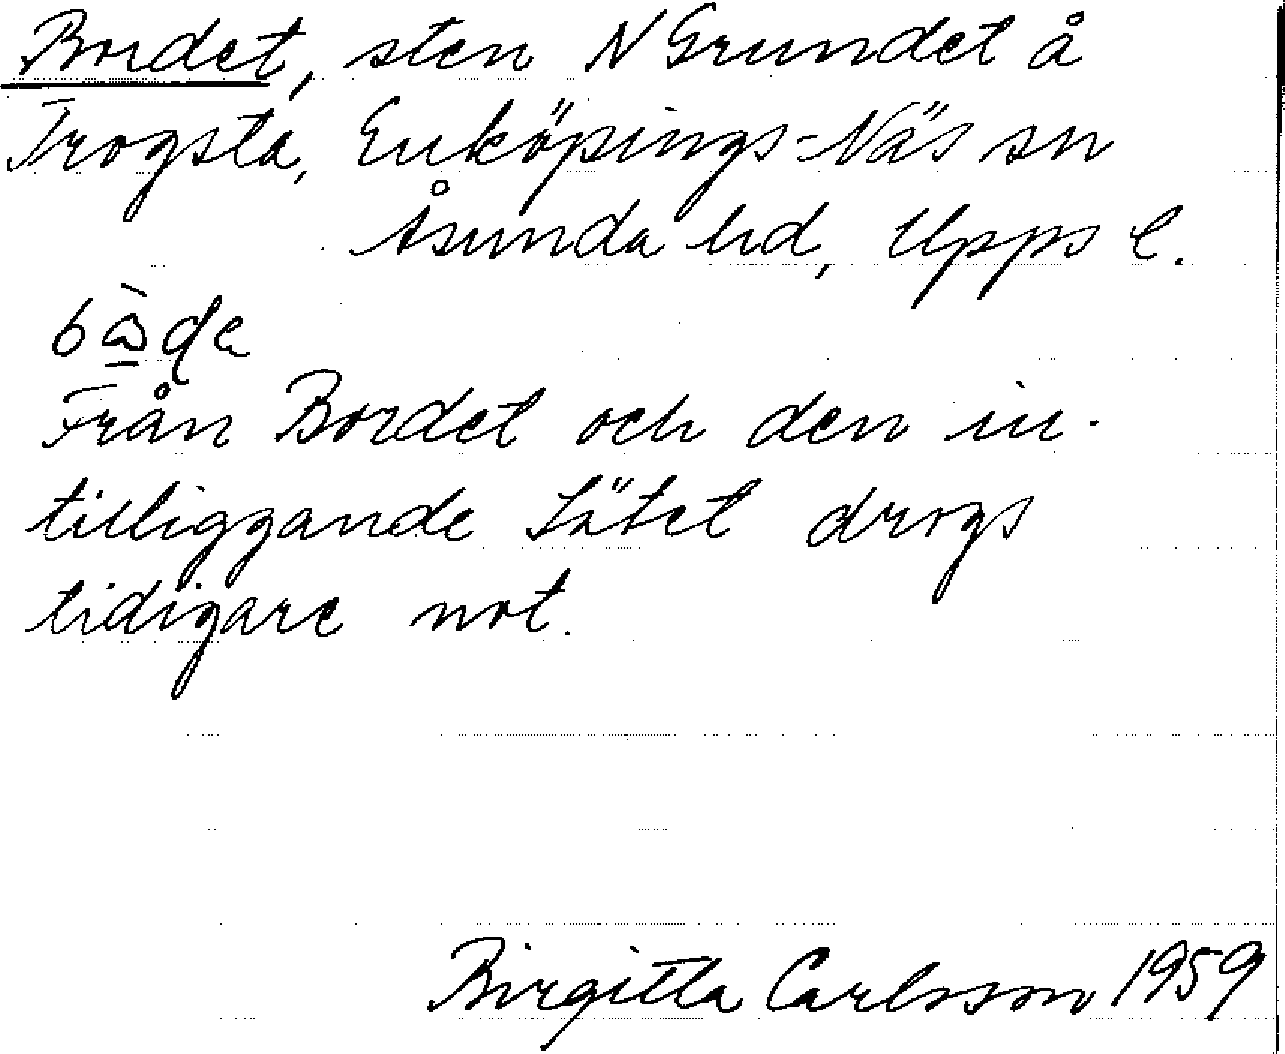 Bordet, sten N Grundet å
Trogsta, Enköpings-Näs sn
Åsunda hd, Upps l.
Från Bordet och den in-
tilliggande Sätet drogs
tidigare not.
Birgitta Carlsson 1959